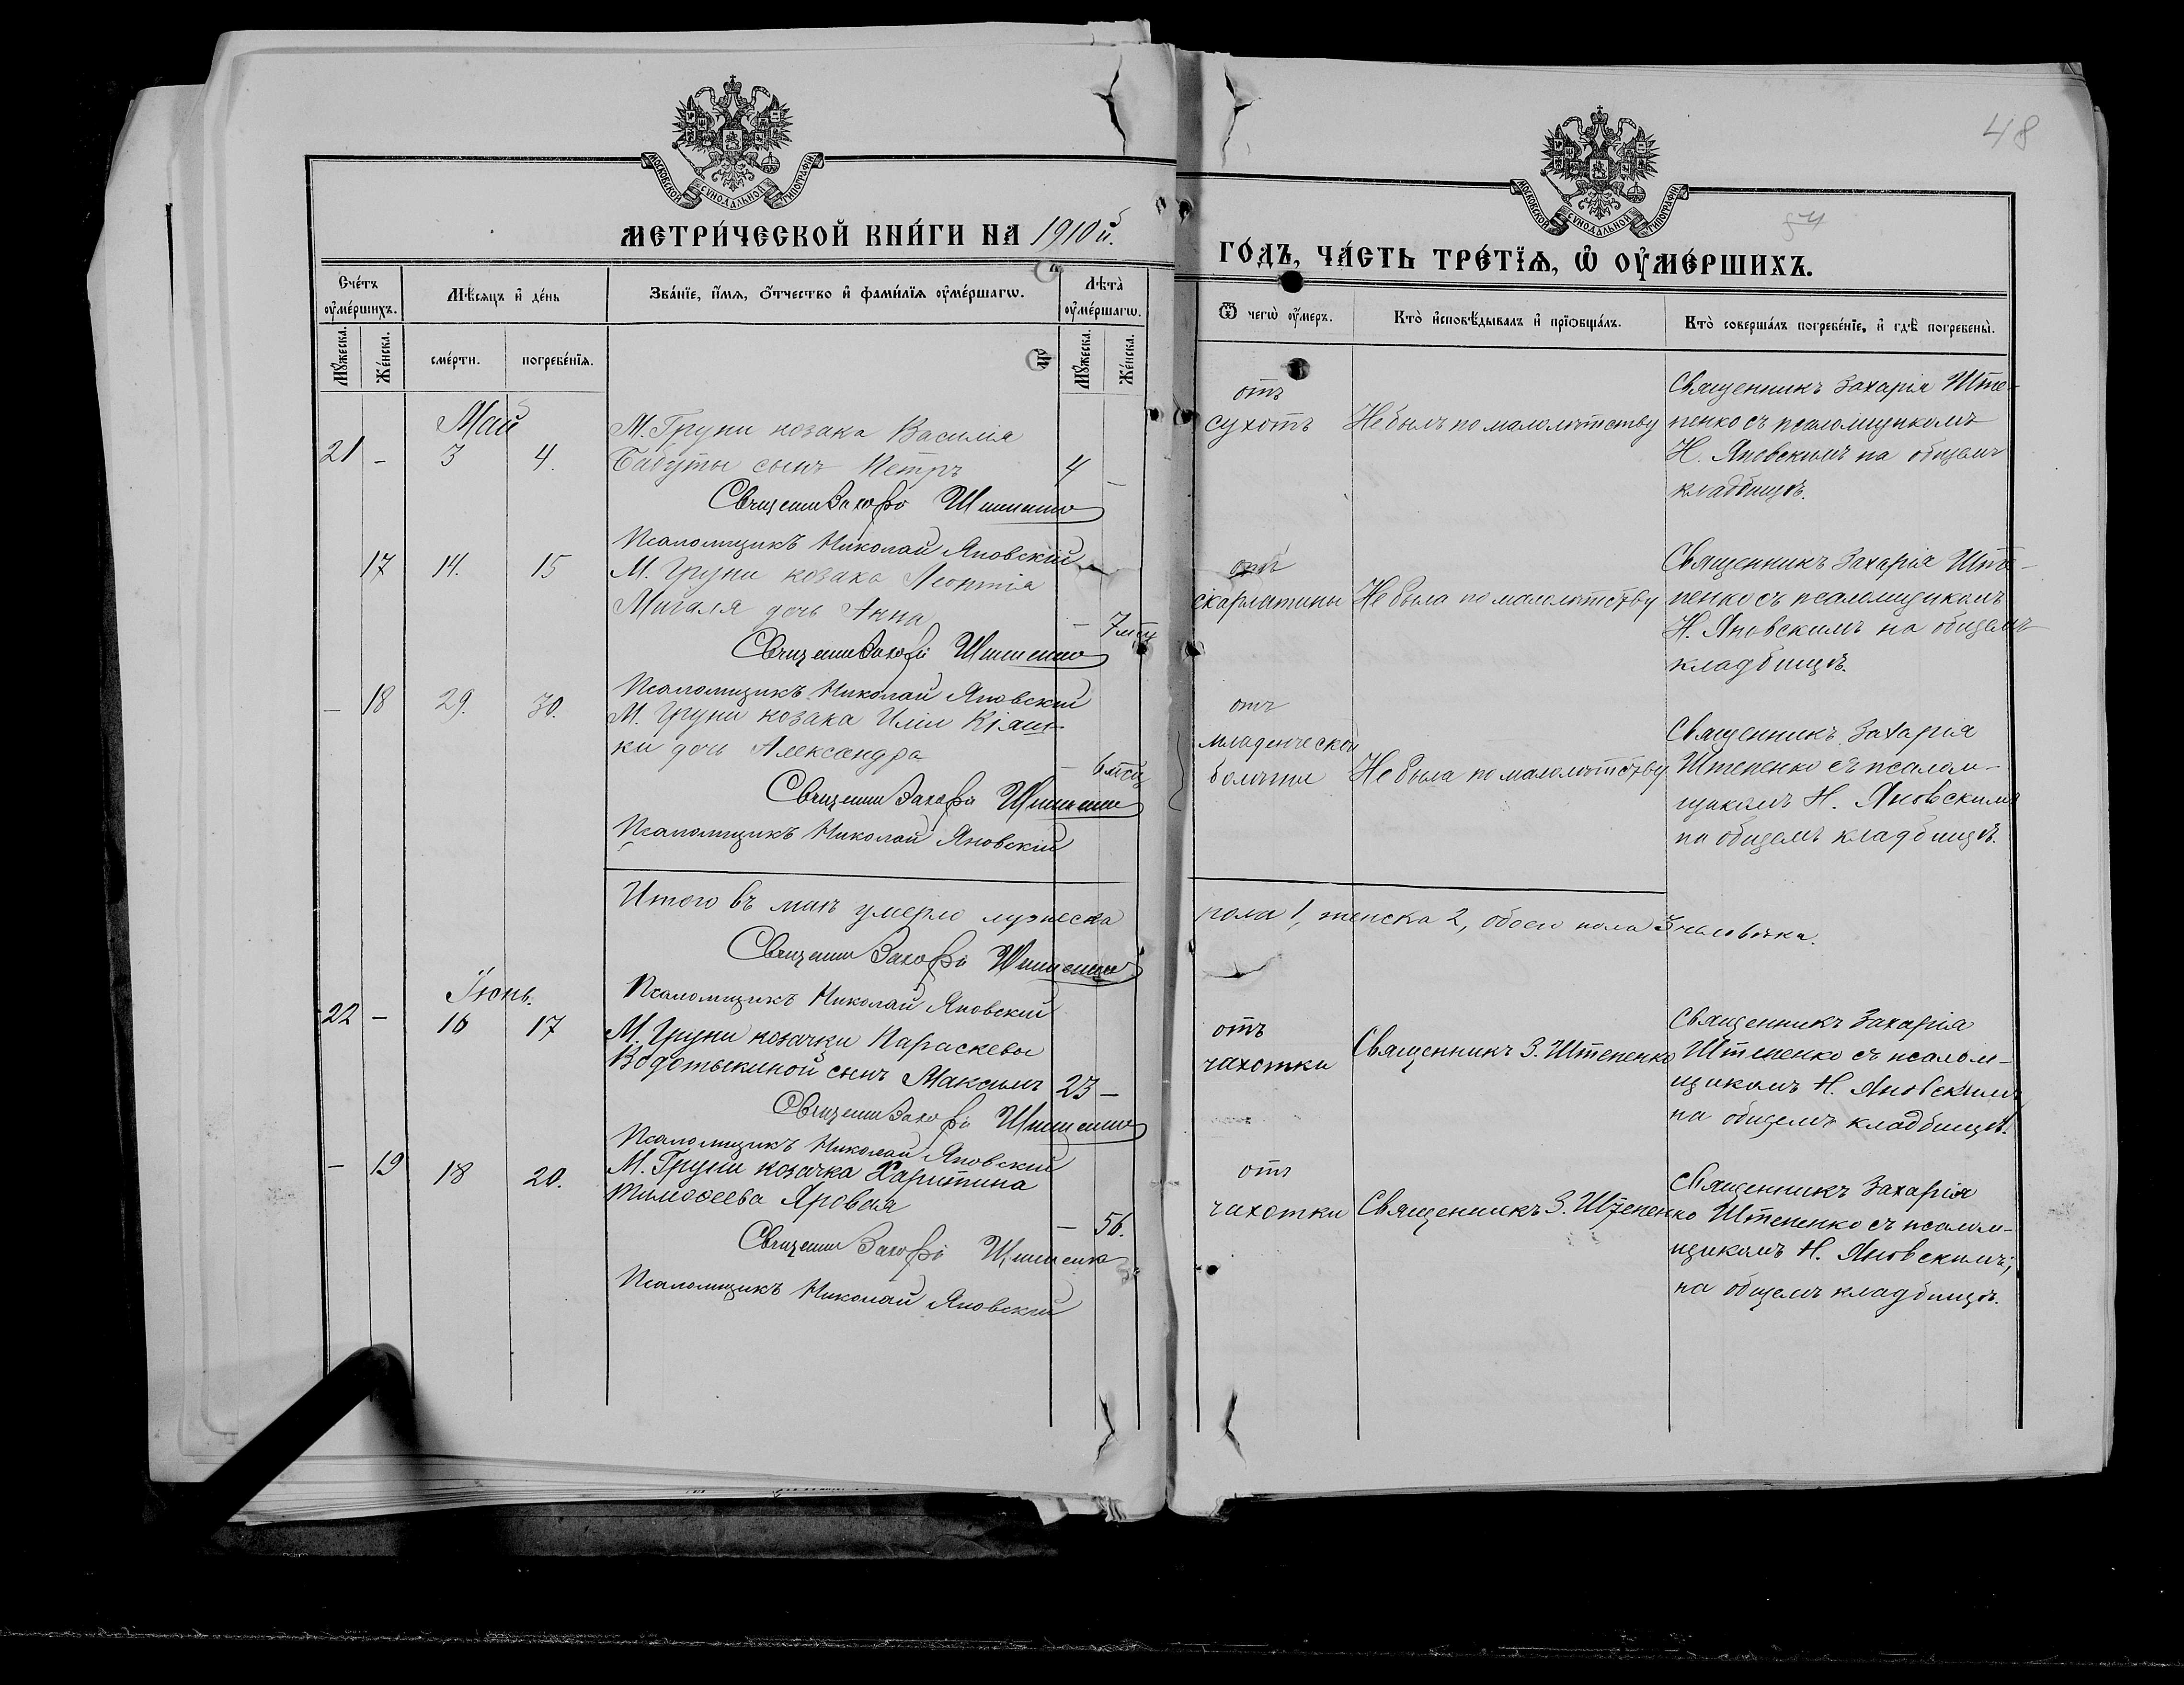 48
54
МОСКОВСКОЙ СѴНОДАЛЬНОЙ ТИПОГРАФІИ
МОСКОВСКОЙ СѴНОДАЛЬНОЙ ТИПОГРАФІИ
МЕТРИ́ЧЕСКОЙ КНИ́ГИ НА 1910й.
ГО́ДЪ, ЧА́СТЬ ТРЕ́ТЇѦ, Ѡ҆ ОУ҆МЕ́РШИХЪ.
Сче́тъ оу҆ме́ршихъ.
Мѣ́сѧцъ и҆ де́нь
Зва́нїе, и҆́мѧ, ѻ҆́тчество и҆ фами́лїѧ оу҆ме́ршагѡ.
Лѣта̀ оу҆ме́ршагѡ.
Ѿ чегѡ̀ оу҆́меръ.
Кто̀ и҆сповѣ́дывалъ и҆ прїѡбща́лъ.
Кто̀ соверша́лъ погребе́нїе, и҆ гдѣ̀ погребены̀.
Мꙋ́жеска.
Же́нска.
сме́рти.
погребе́нїѧ.
Мꙋ́жеска.
Же́нска.
Май
21 - 3 4.
М. Груни козака Василія
Бабуты сынъ Петръ 4 -
Священ Захарія Штепенко
Псаломщикъ Николай Яновскій
отъ
сухотъ
Не былъ по малолѣтству
Священникъ Захарія Ште-
пенко съ псаломщикомъ
Н. Яновскимъ на общемъ
кладбищѣ.
17 14. 15
М. Груни козака Леонтія
Мигаля дочь Анна - 7 мсц
Священ Захарія Штепенко
Псаломщикъ Николай Яновскій
отъ
скарлатины
Не была по малолѣтству
Священникъ Захарія Ште-
пенко съ псаломщикомъ
Н. Яновскимъ на общемъ
кладбищѣ.
- 18 29. 30.
М. Груни козака Иліи Кіаш-
ки дочь Александра - 6 мсц
Священ Захарія Штепенко
Псаломщикъ Николай Яновскій
отъ
младенческой
болѣзни
Не была по малолѣтству
Священникъ Захарія
Штепенко съ псалом-
щикомъ Н. Яновскимъ
на общемъ кладбищѣ.
Итого въ маѣ умерло мужеска
пола 1, женска 2, обоего пола 3 человѣка.
Священ Захарія Штепенко
Псаломщикъ Николай Яновскій
Іюнь.
22 - 16 17
М. Груни козачки Параскевы
Водотыкиной сынъ Максимъ 23 -
Священ Захарія Штепенко
Псаломщикъ Николай Яновскій
отъ
чахотки
Священникъ З. Штепенко
Священникъ Захарія
Штепенко съ псалом-
щикомъ Н. Яновскимъ
на общемъ кладбищѣ.
- 19 18 20.
М. Груни козачка Харитина
Тимоѳеева Яровая - 56.
Священ Захарія Штепенко
Псаломщикъ Николай Яновскій
отъ
чахотки
Священникъ З. Штепенко
Священникъ Захарія
Штепенко съ псалом-
щикомъ Н. Яновскимъ,
на общемъ кладбищѣ.